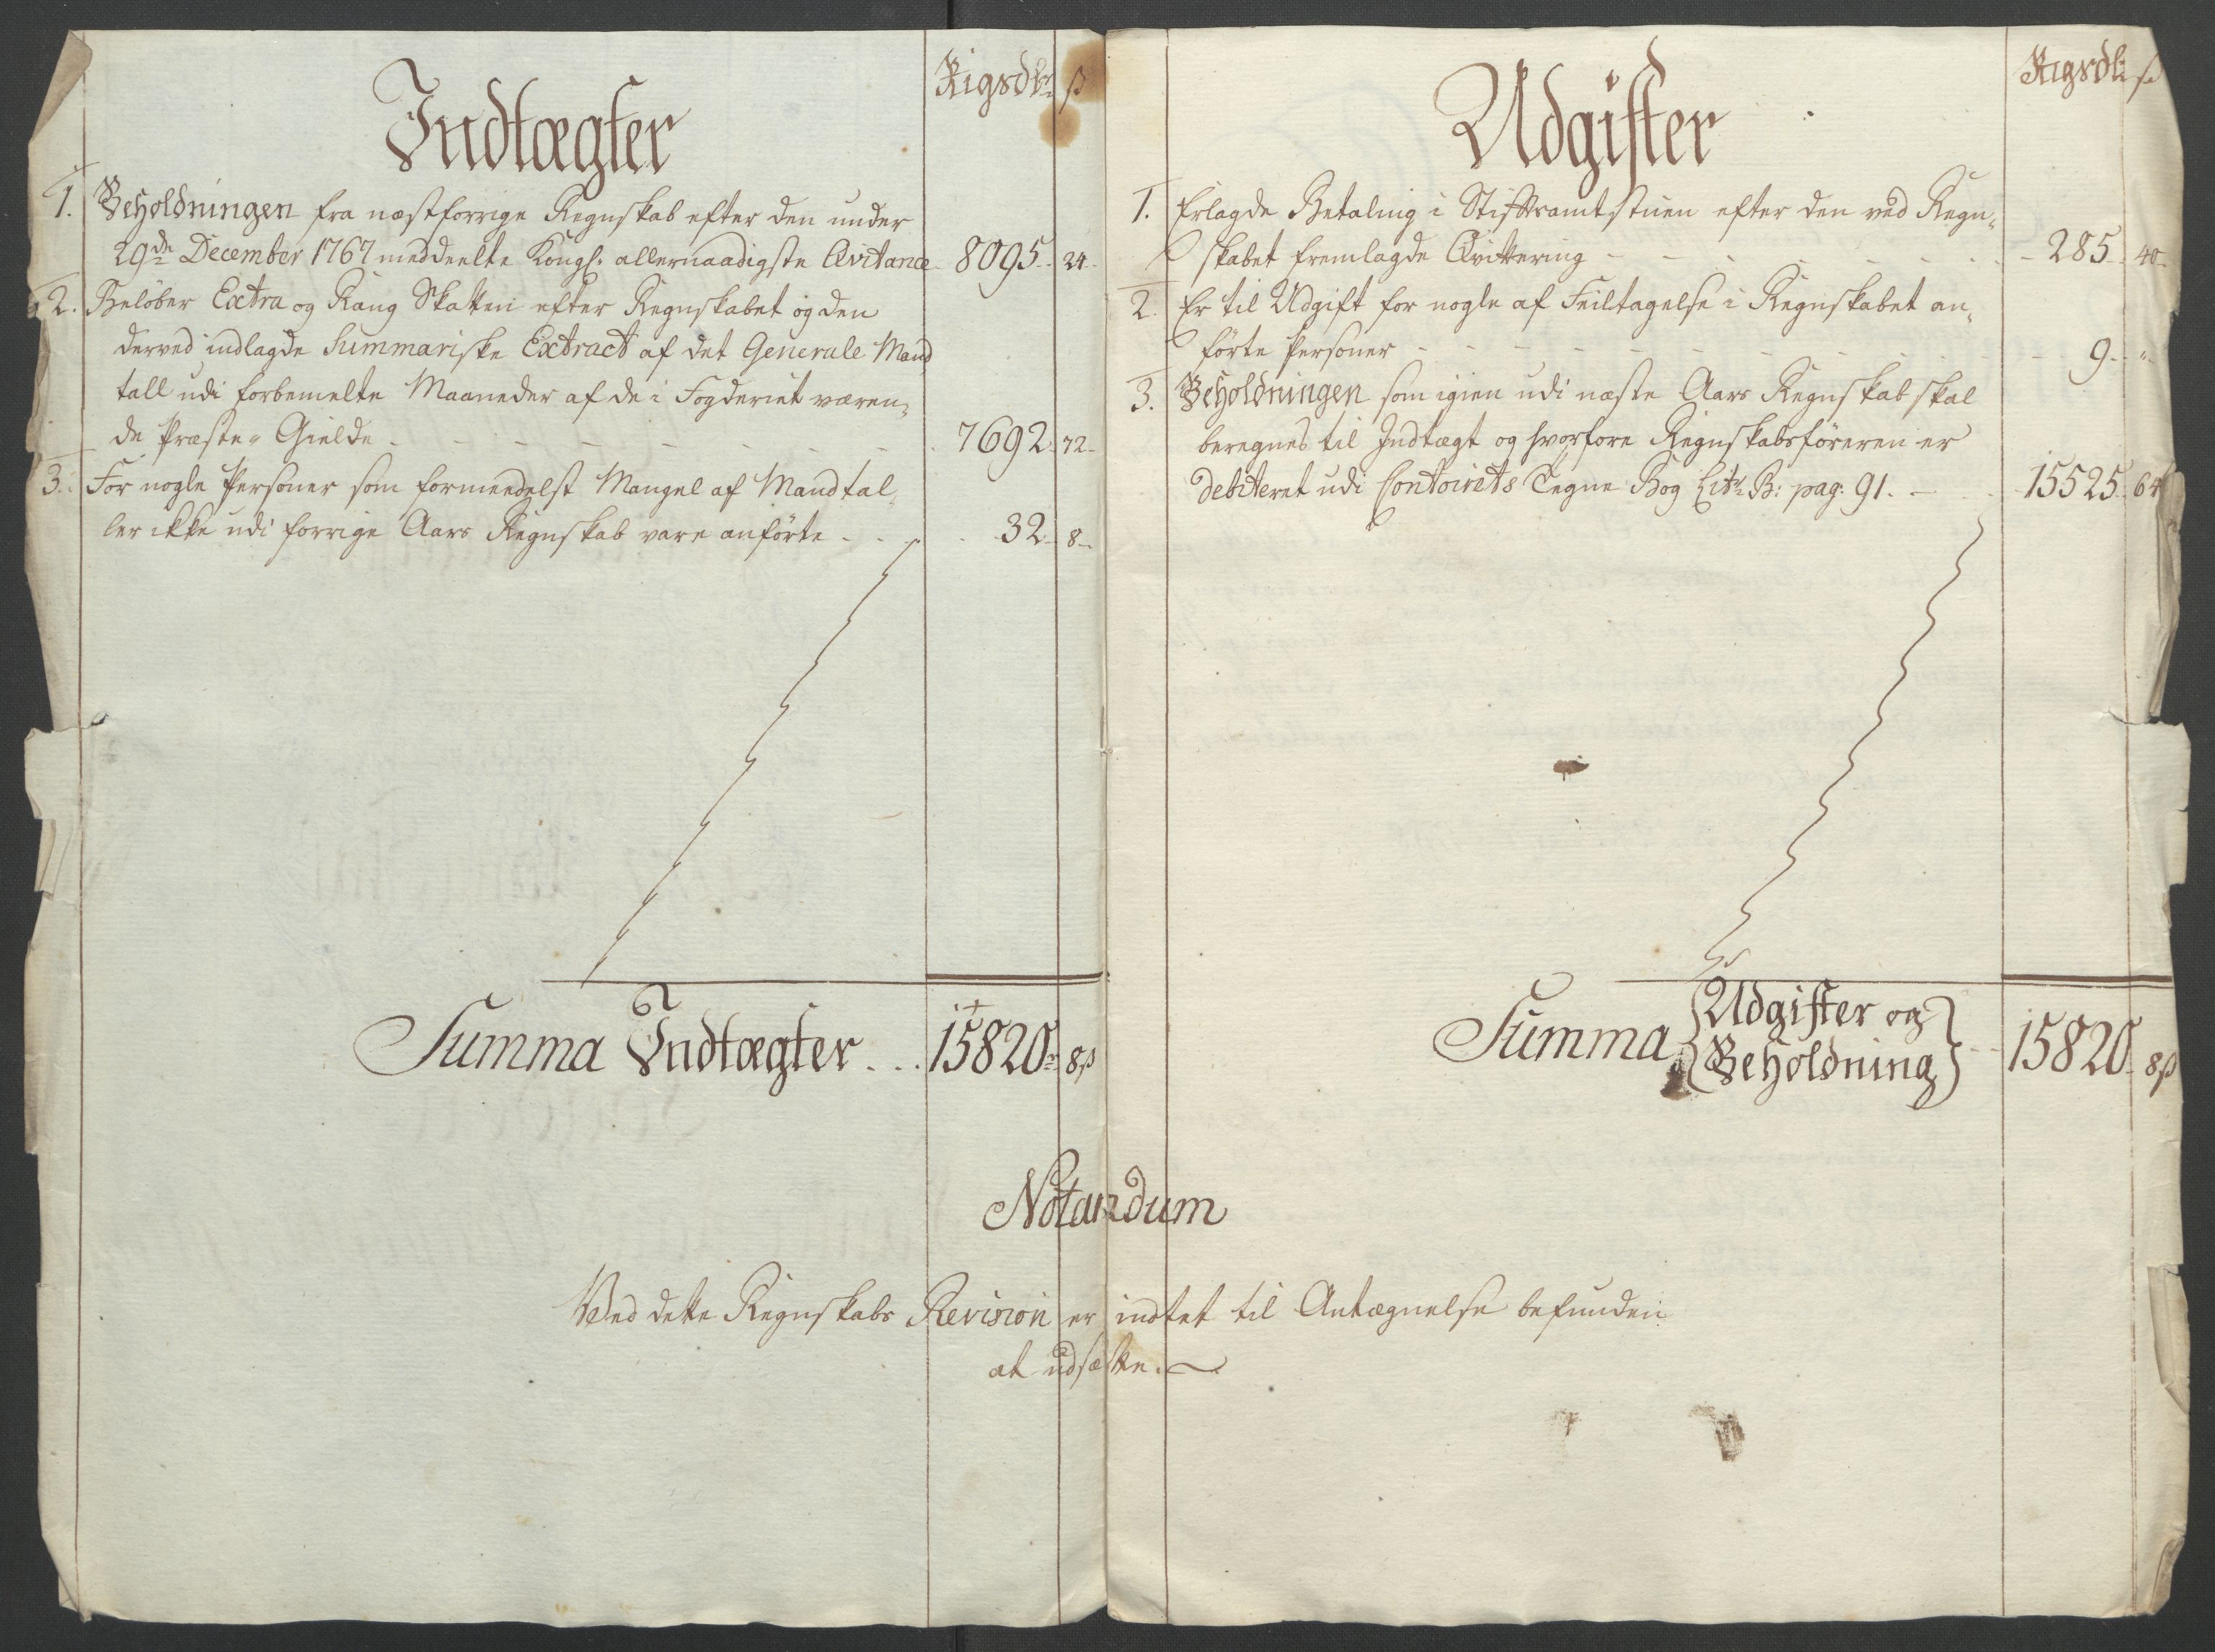 Indtægter
Rigsdlr ß
1. Beholdningen fra næstforrige Regnskab efter den under
29de December 1767 meddeelte Kongl. allernaadigste Qvitance 8095 24
2. Beløber Extra og Rang Skatten efter Regnskabet og den
derved indlagde Summariske Extract af det Generale Mand
tall udi forbemelte Maaneder af de i Fogderiet væren,
de Præste-Gielde 7692 72
3. For nogle Personer som formeedelst Mangel af Mandtal,
ler ikke udi forrige Aars Regnskab vare anførte 32 8
Summa Indtægter 15820 8ß
Udgifter
Rigsdlr ß
1. Erlagde Betaling i Stiftsamtstuen efter den ved Regn,
skabet fremlagde Qvittering 285 40
2. Er til Udgift for nogle af Feiltagelse i Regnskabet an,
førte Personer 9 "
3. Beholdningen som igien udi næste Aars Regnskab skal
beregnes til Indtægt og hvorfore Regnskabsføreren er
debiteret udi Contoirets Tegne Bog Litr. B: pag: 91. 15525 64
Summa Udgifter og
Beholdning 15820 8ß
Notandum
Ved dette Regnskabs Revision er indtet til Antægnelse befunden
at udsætte.